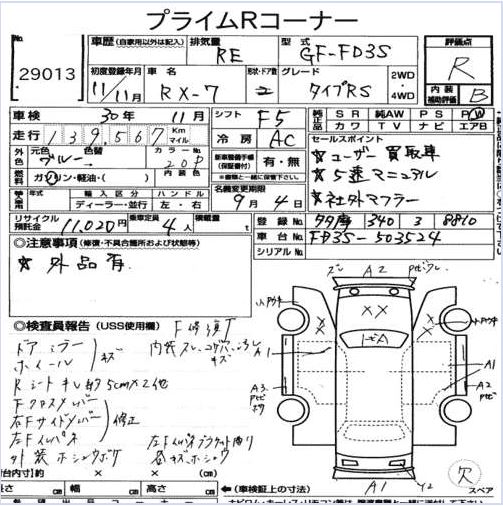 プライムRコーナー
No. 29013
車歴 (自家用以外は記入) 排気量 RE 型式 GF-FD3S 評価点 R
初度登録年月 11/11月 車名 RX-7 形状・ドア数 2 グレード タイプRS 2WD・4WD 内装補助評価 B
車検 30年 11月 シフト F5 純正品 SR 純AW PS PW
カワ TV ナビ エアB
走行 139,567 Km マイル 冷房 AC セールスポイント
外色 元色 ブルー 色替 カラーNo 20P 内装色 新車整備手帳(保証書付) 有・無 ★ユーザー買取車
燃料 ガソリン・軽油・( ) *車歴と一緒に保管して下さい ★5速マニュアル
輸入車 年式 輸入区分 ハンドル 名義変更期限 ★社外マフラー
ディーラー・並行 左・右 9月4日
リサイクル預託金 11,020円 乗車定員 4人 積載量 t 登録No. 多摩 340 3 8810
◎注意事項 (修復・不具合箇所および状態等) 車台No. FD3S-503524
シリアルNo.
★外品有
ズレ A2
◎検査員報告 (USS使用欄) F修復T
ドアミラー
ホイール キズ
内装スレ コゲ穴
キズ
A1
Rシートキレ約5cm×2他
Fクロスメンバー
右Fサイドメンバー
左Fインパネ 修正
外装
左Fインパネブラケット曲り
A3
A1
A2
A1
Y2
欠
スペア
荷台内寸(約) × × )cm
長さ cm 幅 cm 高さ cm ←(車検証上の寸法)